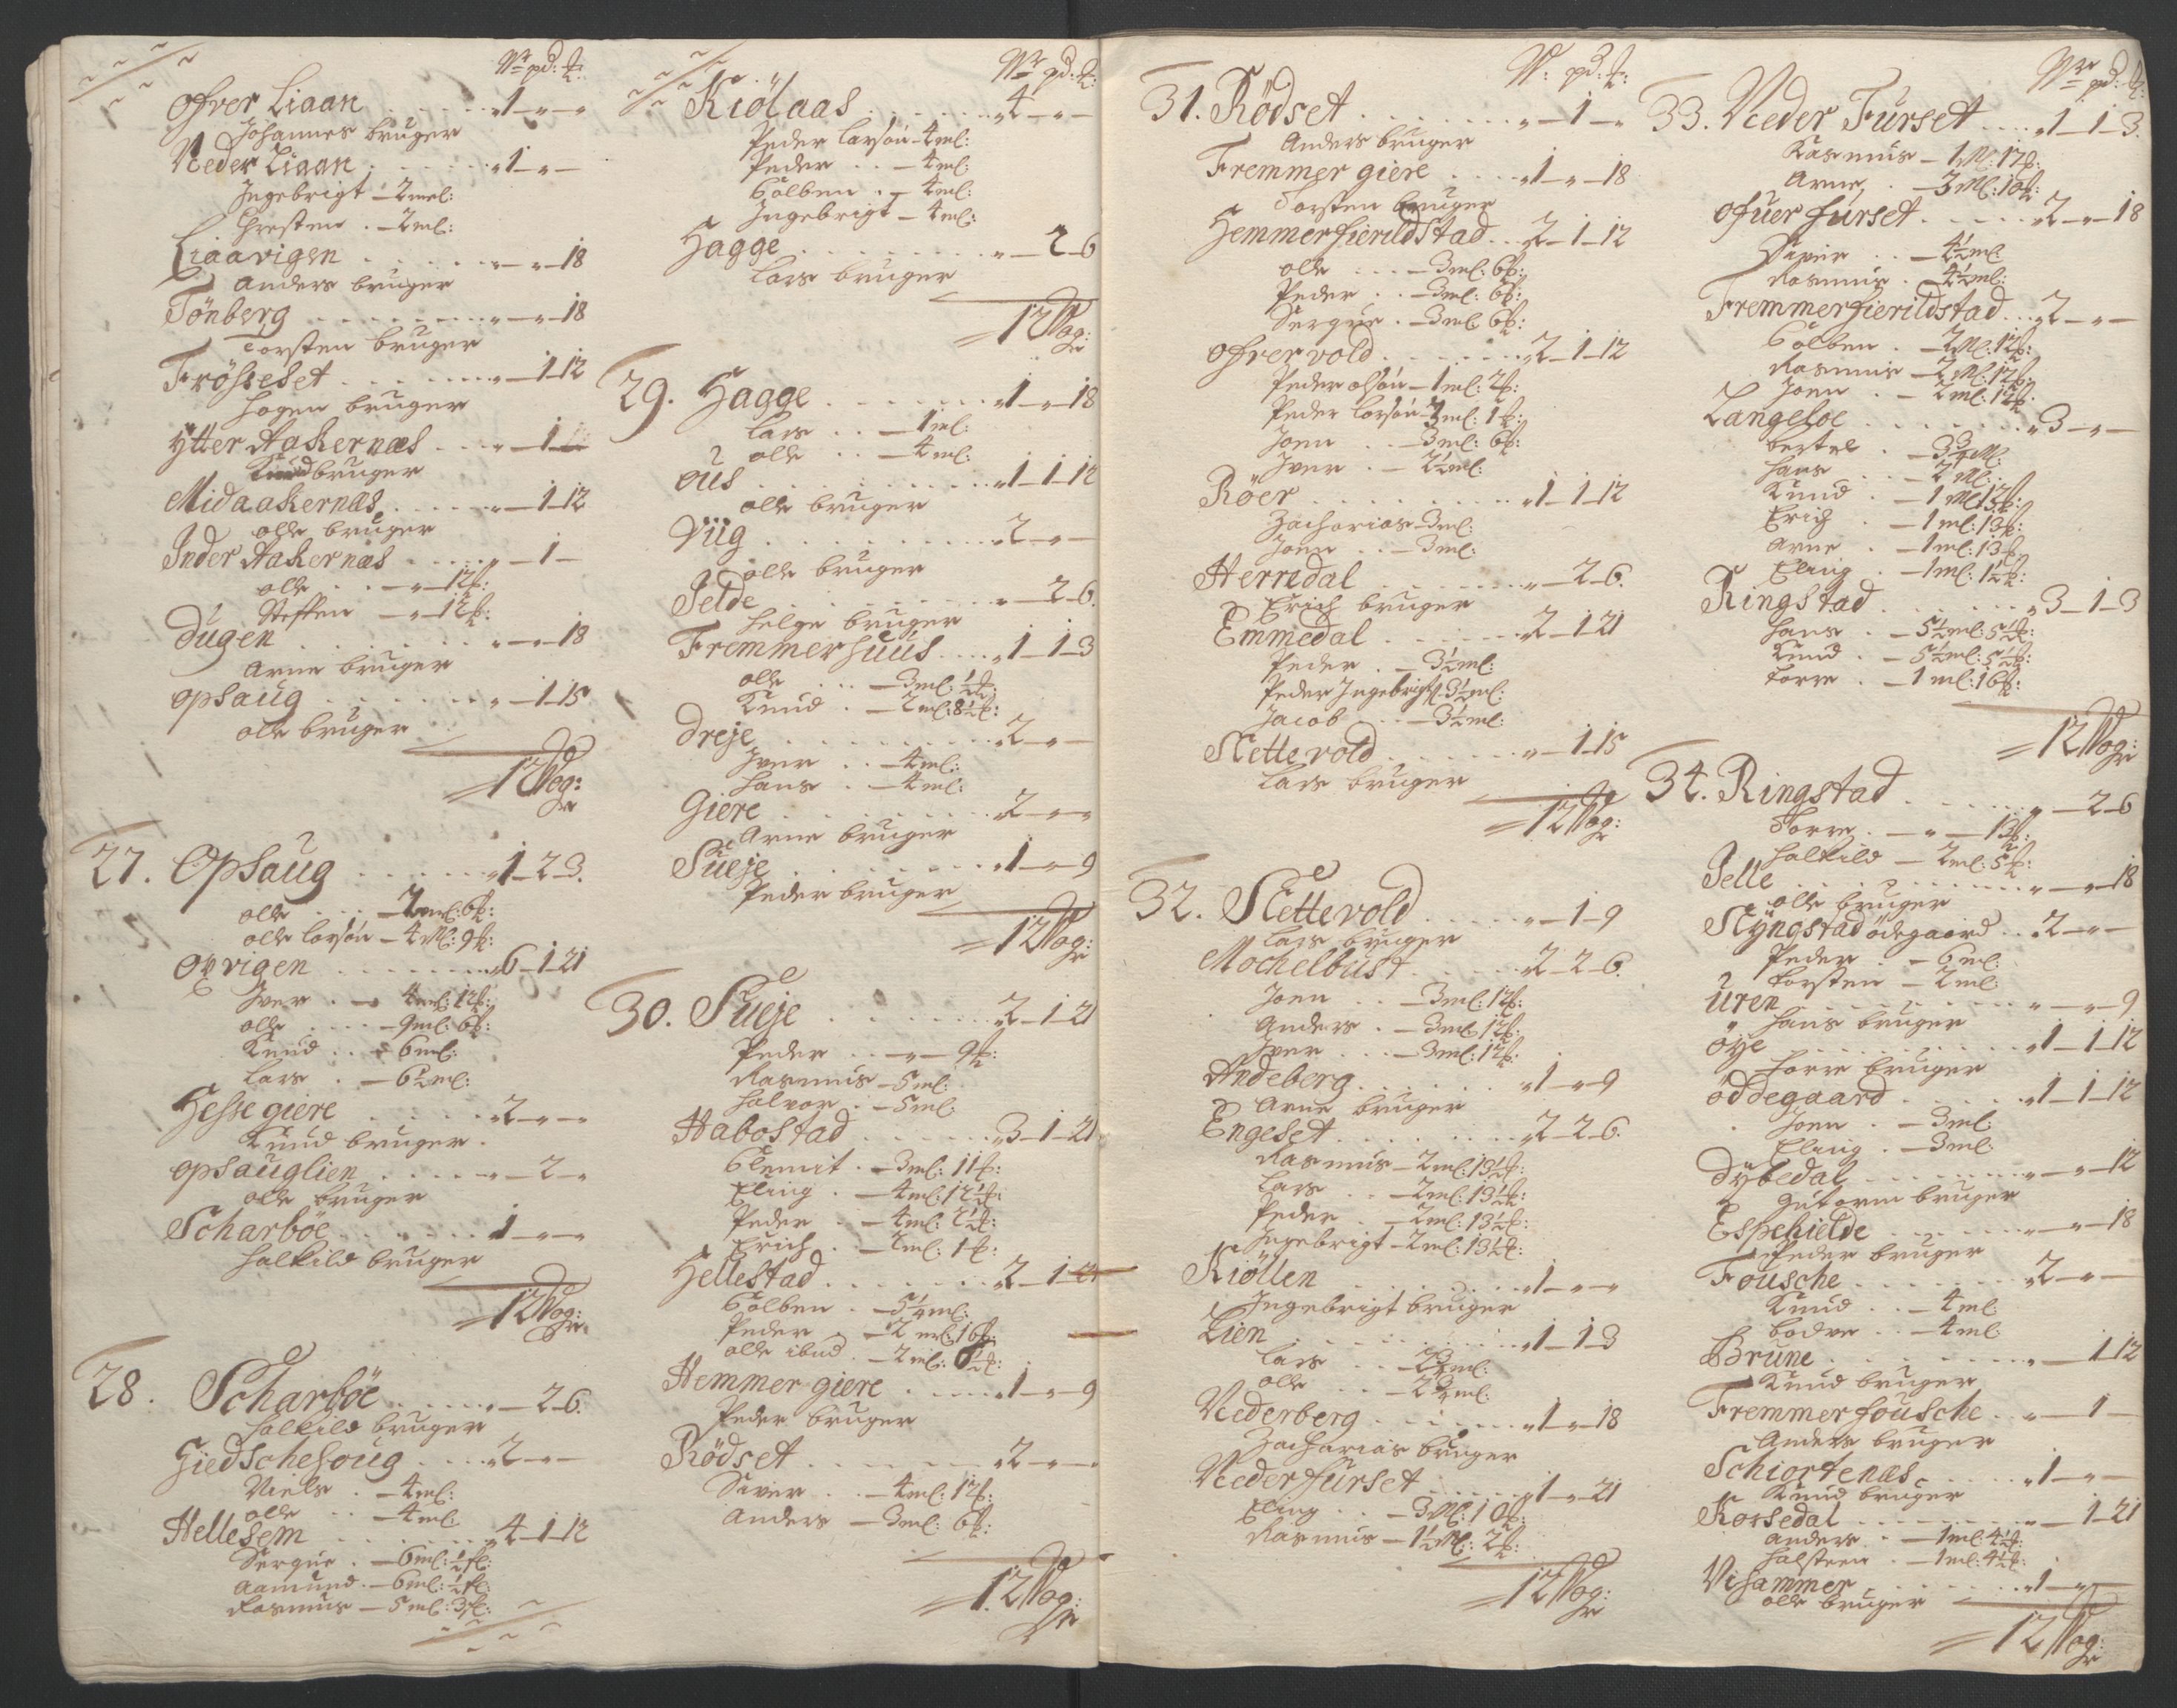 Wr pd: ℔:
Ofver Liaan . . . . . „1 – „ – „
Johannes bruger
Neder Liaan . . . . . „1 – „ –
Ingebrigt – 2ml:
Chresten . – 2ml:
Liaavigen . . . . . „ – „ – 18
Anders bruger
Tönberg . . . . . „ – „ – 18
Torsten bruger
Frösieset . . . . . „ – 1 – 12
Hogen bruger
Ytter Aakernæs . . . „ – 1 –
Knud bruger
Midaakernæs . . . „ – 1 – 12
olle bruger
Inder Aakernæs . . . . „ – 1 –
olle . . – „ – 12℔:
Steffen – „ – 12℔:
Dugen . . . . . „ – „ – 18
Arne bruger
opsaug . . . . . „ – 1 – 15
olle bruger
12 Wog:
27. Opsaug . . . . . „1 – 2 – 3.
olle . . . – 2ml: 6℔:
olle Larsön – 4Ml: 9℔:
Ørvigen . . . . . „6 – 1 – 21
Iver . – 4ml: 12℔:
olle . . . – 9ml: 6℔:
Knud . . – 6ml:
Lars . – 6½ml:
Hessegiere . . . . . „2 – „ – „
Knud bruger.
opsauglien . . . . „ – 2 – „
olle bruger
Scharböe . . . . . „1 – „ – „
Halkild bruger
12 Wog:
28. Scharböe . . . . . „ – 2 – 6.
Halkild bruger
Giedschehoug . . . . „2 – „ –
Niels . – 4ml:
olle . . – 4ml:
Hellesem . . . . . „4 – 1 – 12
Sergue . – 6ml: ½℔:
Aamund – 6ml: ½℔:
Rasmus – 5ml: 3℔:
Wr pd: ℔:
Kiölaas . . . . . „4 – „ –
Peder Larsön – 4ml:
Peder . . – 4ml:
Colben . – 4ml:
Ingebrigt – 4ml:
Hagge . . . . . „ – 2 – 6
Lars bruger
12 Wog:
29. Hagge . . . . . „1 – „ – 18
Lars . . – 1ml:
olle . . – 4ml:
ous . . . . . „1 – 1 – 12
olle bruger
Viig . . . . . „2 – „ –
olle bruger
Jelde . . . . . „ – 2 – 6.
Helge bruger
Fremmerhuus . . . . „1 – 1 – 3
olle . . . – 3ml: ½℔:
Knud . – 2ml: 8½℔:
Dreje . . . . . „2 – „ –
Iver . . – 4ml:
Hans . – 4ml:
Giere . . . . . „2 – „ – „
Arne bruger
Sueje . . . . . „1 – „ – 9
Peder bruger
12 Wog:
30. Sueje . . . . . „2 – 1 – 21
Peder . . – „ – 9℔:
Rasmus – 5ml:
Halvor . – 5ml:
Habostad . . . . . „3 – 1 – 21
Clemit . – 3ml: 11℔:
Eling . – 4ml: 12½℔:
Peder . – 4ml: 2½℔:
Erich . – 2ml: 1℔:
Hellestad . . . . . „2 – 1 –
Colben . – 5¼ml:
Peder . – 2ml: 16℔:
olle ibid . – 2ml: 6½℔:
Hemmergiere . . . . „1 – „ – 9
Peder bruger
Rödset . . . . . „2 – „ – „
Siver . . – 4ml: 12℔:
Anders – 3ml: 6℔:
12 Wog:
W: pd: ℔:
31. Rödset . . . . . „ – 1 – „
Anders bruger
Fremmergiere . . . . „1 – „ – 18
Torsten bruger
Hemmerfierildstad . . „2 – 1 – 12
olle . . . – 3ml: 6℔:
Peder . . – 3ml: 6℔:
Sergue . – 3ml: 6℔:
Ofrervold . . . . . „2 – 1 – 12
Peder olsön – 1ml: 2℔:
Peder Larsön – 3ml: 1℔:
Joen . . – 3ml: 6℔:
Iver . – 2½ml:
Röer . . . . . „1 – 1 – 12
Zacharias – 3ml:
Joen . . – 3ml:
Herredal . . . . . „ – 2 – 6.
Erich bruger
Emmedal . . . . . „2 – 1 – 21
Peder . – 3½ml:
Peder Ingebrigts – 3½ml:
Jacob . . – 3½ml:
Slettevold . . . . . „ – 1 – 15
Lars bruger
12 Wog:
32. Slettevold . . . . . „ – 1 – 9
Lars bruger
Mochelbust . . . . . „2 – 2 – 6.
Joen . . – 3ml: 12℔:
Anders . – 3ml: 12℔:
Iver . . . – 3ml: 12℔:
Andeberg . . . . . „1 – „ – 9
Arne bruger
Engeset . . . . . „2 – 2 – 6.
Rasmus – 2ml: 13½℔:
Lars . . – 2ml: 13½℔:
Peder . – 2ml: 13½℔:
Ingebrigt – 2ml: 13½℔:
Kiöllen . . . . . „1 – „ – „
Ingebrigt bruger
Lien . . . . . „1 – 1 – 3
Lars . . – 2¾ml:
olle . . – 2¾ml:
Nederberg . . . . . „1 – „ – 18
Zacharias bruger
Nederfurset . . . . . „1 – „ – 21
Eling . . – 3Ml: 10℔:
Rasmus – 1½Ml: 2℔:
12 Wog:
Wr pd: ℔:
33. Neder Furset . . . . „1 – 1 – 3.
Rasmus – 1Ml: 17℔:
Arne . – 3Ml: 10℔:
Ofuer furset . . . . . „2 – „ – 18
Siver . . – 4½ml
Rasmus . – 4½ml:
Fremmerfierildstad . . „2 – „ –
Colben . – 2Ml: 12℔:
Rasmus – 2Ml: 12℔:
Joen . – 2ml: 12℔:
Langeloe . . . . . „3 – „ –
Bertel . – 3¾Ml:
Hans . . – 2Ml:
Knud . – 1Ml 12℔:
Erich . – 1ml: 13℔:
Arne . – 1ml: 13℔:
Eling . – 1ml: 1½℔:
Ringstad . . . . . „3 – 1 – 3
Hans . – 5½ml: 5½℔:
Knud . – 5½ml: 5½℔:
Torre . – 1ml: 16℔:
12 Wog:
34. Ringstad . . . . . „ – 2 – 6
Torre . – „ – 13℔:
Halkild – 2ml: 5℔:
Jelle . . . . . „ – „ – 18
olle bruger
Slÿngstad ödegaard . . „2 – „ –
Peder . – 6ml:
Torsten – 2ml:
uren . . . . . „ – „ – 9
Hans bruger
öÿe . . . . . „1 – 1 – 12
Torre bruger
öddegaard . . . . . „1 – 1 – 12
Joen . – 3ml
Eling . – 3ml:
Dÿbedal . . . . . „ – „ – 12
Gutorm bruger
Espehielde . . . . . „ – „ – 18
Peder bruger
Fousche . . . . . „2 – „ –
Knud . . – 4ml
Bodve . . – 4ml:
Brune . . . . . „ – 1 – 12
Knud bruger
Fremmerfousche . . „ – 1 –
Anders bruger
Schiortenæs . . . . . „1 – „ –
Knud bruger
Korsedal . . . . . „ – 1 – 21
Anders . – 1ml: 4½℔:
Halsteen . – 1ml: 4½℔:
Vihammer . . . . . „1 – „ –
olle bruger
12 Wog: